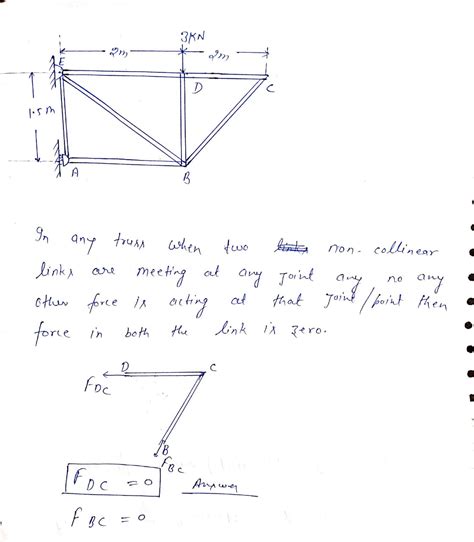 3KN
2m 2m
E
D C
1.5m
A
B
In any truss when two non-collinear
links are meeting at any joint any no any
other force is acting at that joint/point then
force in both the link is zero.
D C
FDC
B
FBC
FDC = 0 Answer
FBC = 0